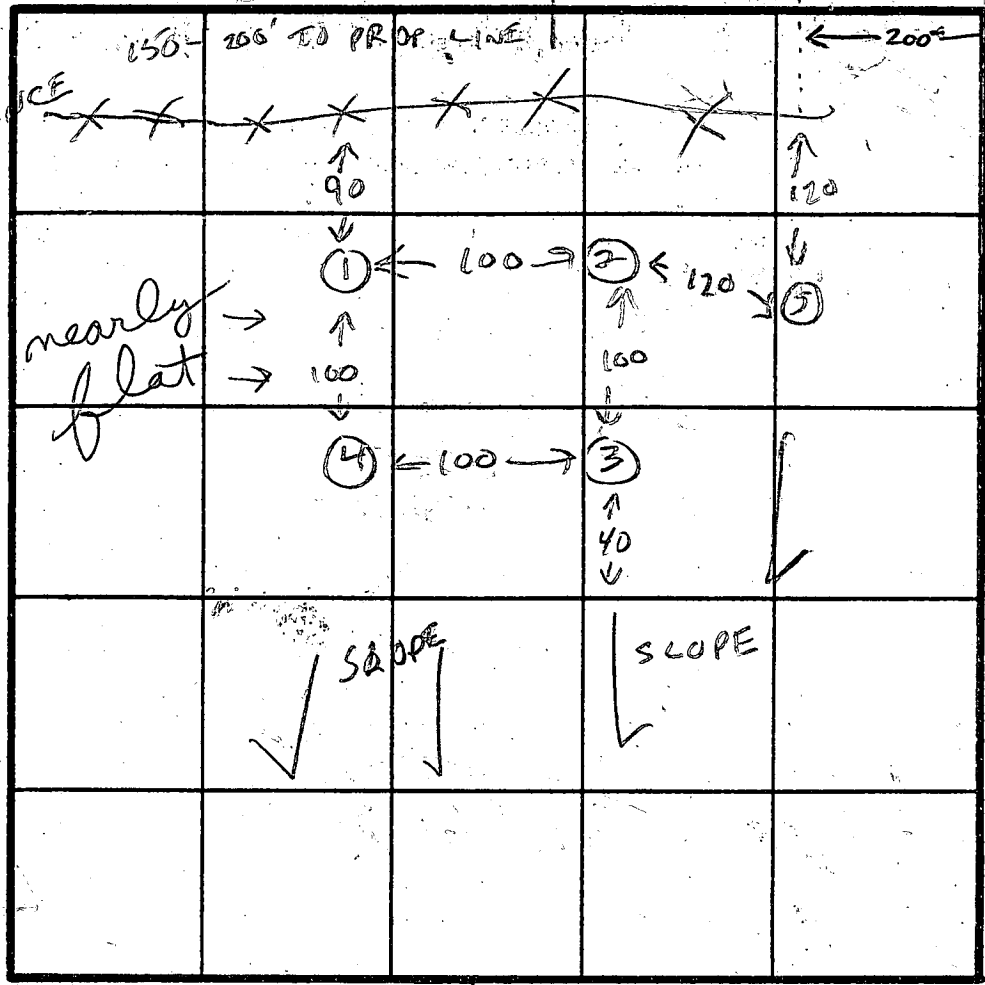 150- 200' TO PROP LINE
200±
90
120
1 100 2 120 5
nearly
flat
100
100
4 100 3
40
SLOPE
SLOPE